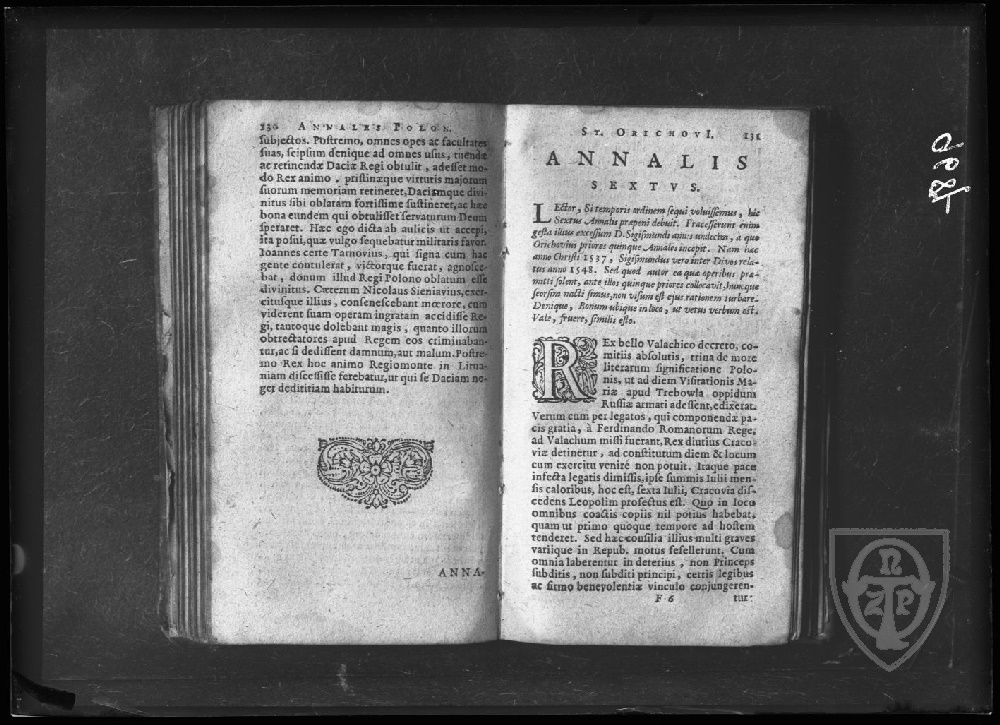 130 ANNALES POLON.
subjectos. Postremo, omnes opes ac facultates
suas, seipsum denique ad omnes usus, tuendæ
ac retinendæ Daciæ Regi obtulit, adesset mo-
do Rex animo, pristinæque virtutis majorum
suorum memoriam retineret, Daciamque divi-
nitus sibi oblatam fortissime sustineret, ac hæc
bona eundem qui obtulisset servaturum Deum
speraret. Hæc ego dicta ab aulicis ut accepi,
ita posui, quæ vulgo sequebatur militaris favor.
Ioannes certe Tarnovius, qui signa cum hac
gente contulerat, victorque fuerat, agnosce-
bat, donum illud Regi Polono oblatum esse
divinitus. Cæterum Nicolaus Sieniavius, exer-
citusque illius, consenescebant mœrore, cum
viderent suam operam ingratam accidisse Re-
gi, tantoque dolebant magis, quanto illorum
obtrectatores apud Regem eos criminaban-
tur, ac si dedissent damnum, aut malum. Postre-
mo Rex hoc animo Regiomonte in Litua-
niam discessisse ferebatur, ut qui se Daciam ne-
ger dedititiam habiturum.
ANNA-
ST. ORICHOVI. 131
ANNALIS
SEXTVS.
LEctor, Si temporis ordinem sequi voluissemus, hic
Sextus Annalis præponi debuit. Præcesserunt enim
gesta illius excessum D. Sigismundi annis undecim, à quo
Orichovius priores quinque Annales incepit. Nam hæc
anno Christi 1537, Sigismundus vero inter Divos rela-
tus anno 1548. Sed quod autor ea quæ operibus præ-
mitti solent, ante illos quinque priores collocavit, hunc que
seorsim nacti simus, non visum est ejus rationem turbare.
Denique, Bonum ubique in loco, ut vetus verbum est.
Vale, fruere, similis esto.
REx bello Valachico decreto, co-
mitiis absolutis, trina de more
literarum significatione Polo-
nis, ut ad diem Visitationis Ma-
riæ apud Trebowla oppidum
Russiæ armati adessent, edixerat.
Verum cum per legatos, qui componendæ pa-
cis gratia, à Ferdinando Romanorum Rege,
ad Valachum missi fuerant, Rex diutius Craco-
viæ detinetur, ad constitutum diem & locum
cum exercitu venire non potuit. Itaque pace
infecta legatis dimissis, ipse summis Iulii men-
sis caloribus, hoc est, sexta Iulii, Cracovia dis-
cedens Leopolim profectus est. Quo in loco
omnibus coactis copiis nil potius habebat,
quam ut primo quoque tempore ad hostem
tenderet. Sed hæc consilia illius multi graves
variique in Repub. motus fefellerunt. Cum
omnia laberentur in deterius, non Princeps
subditis, non subditi principi, certis legibus
ac firmo benevolentiæ vinculo conjungeren-
F 6 tur:
NZP